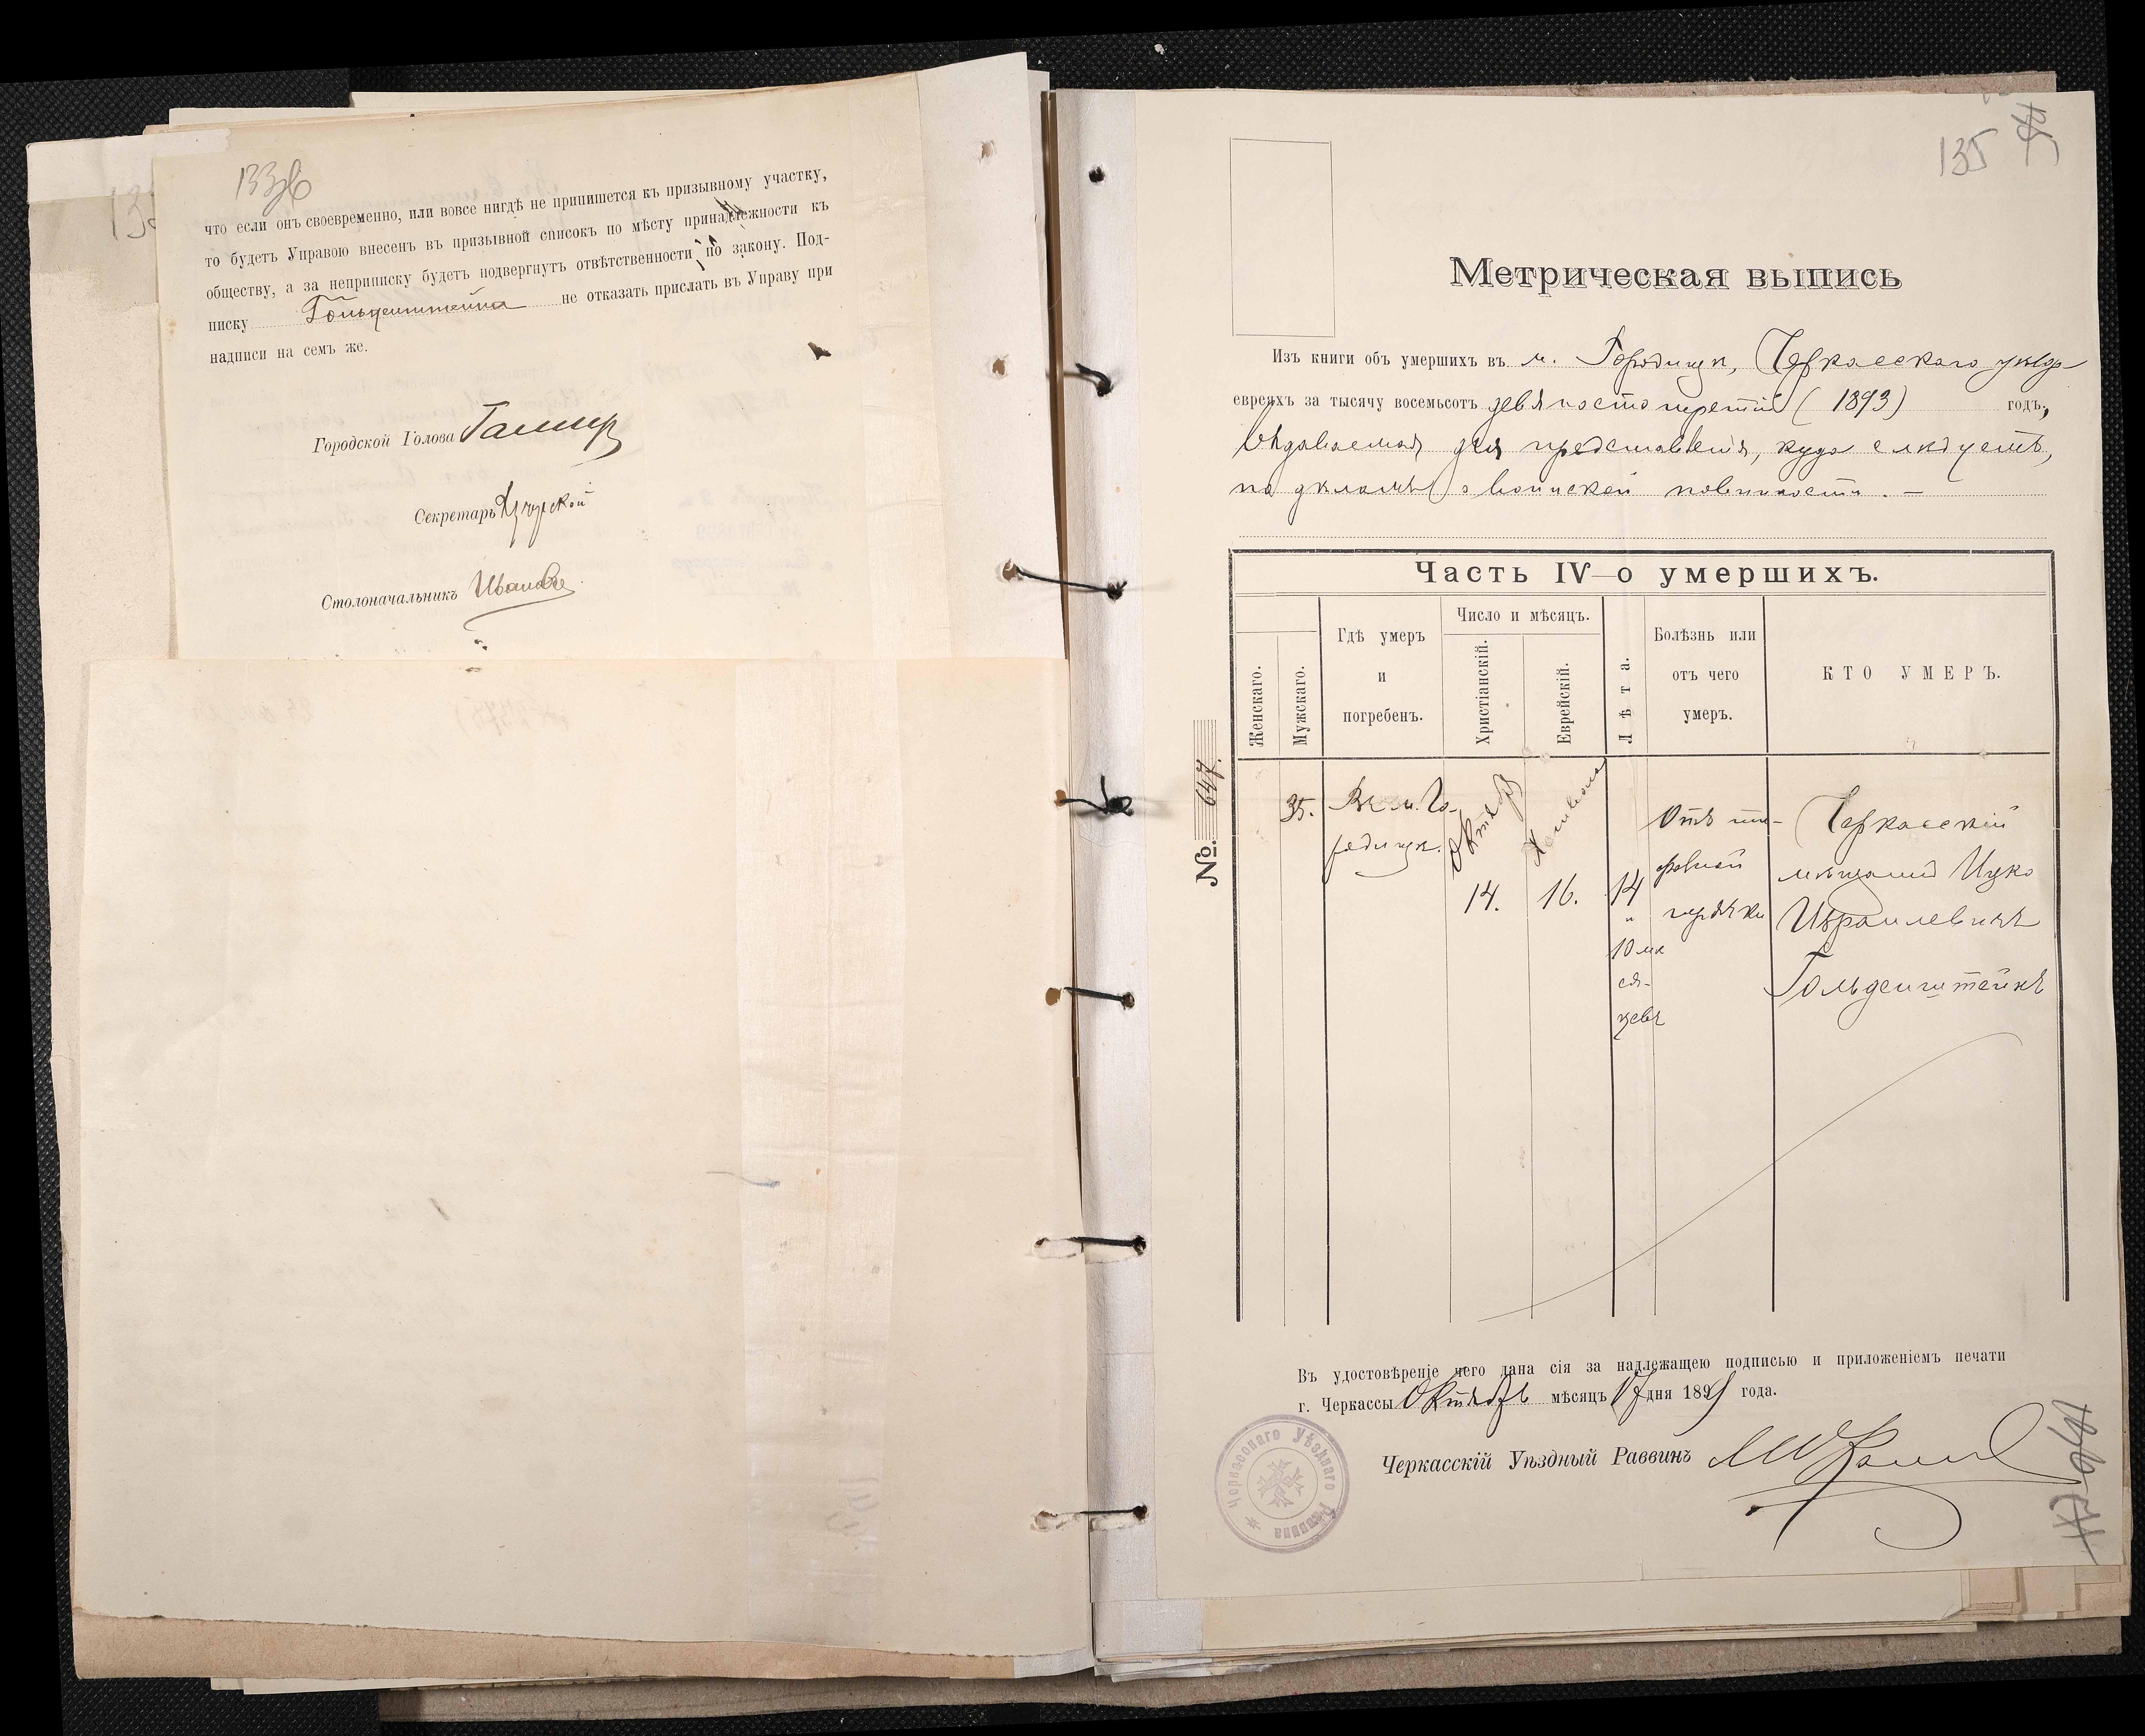 133об
что если онъ своевременно, или вовсе нигдѣ не припишется къ призывному участку,
то будетъ Управою внесенъ въ призывной списокъ по мѣсту принадлежности къ
обществу, а за неприписку будетъ подвергнутъ отвѣтственности по закону. Под-
писку Гольденштейна не отказать прислать въ Управу при
надписи на семъ же.
Городской Голова
Секретарь
Столоначальникъ Ивановъ
135
Метрическая выпись
Изъ книги объ умершихъ въ м. Городищѣ, Черкасскаго уѣзда
евреяхъ за тысячу восемьсотъ девяносто третій (1893) годъ,
выдаваемая для представленія, куда слѣдуетъ,
по дѣламъ о воинской повинности. —
Часть IV—о умершихъ.
Женскаго.
Мужскаго.
Гдѣ умеръ и погребенъ.
Число и мѣсяцъ.
Христіанскій.
Еврейскій.
Лѣта.
Болѣзнь или отъ чего умеръ.
КТО УМЕРЪ.
№. 647.
35.
Въ м. Го-
родищѣ.
Октября
14.
Хешвона
16.
14
и
10 мѣ
ся-
цевъ
Отъ ти-
фозной
горячки
Черкасскій
мѣщанинъ Ицко
Израилевичъ
Гольденштейнъ
Въ удостовѣреніе чего дана сія за надлежащею подписью и приложеніемъ печати
г. Черкассы Октябрь мѣсяцъ 17 дня 1899 года.
Черкасскій Уѣздный Раввинъ
Черкасскаго Уѣзднаго Раввина